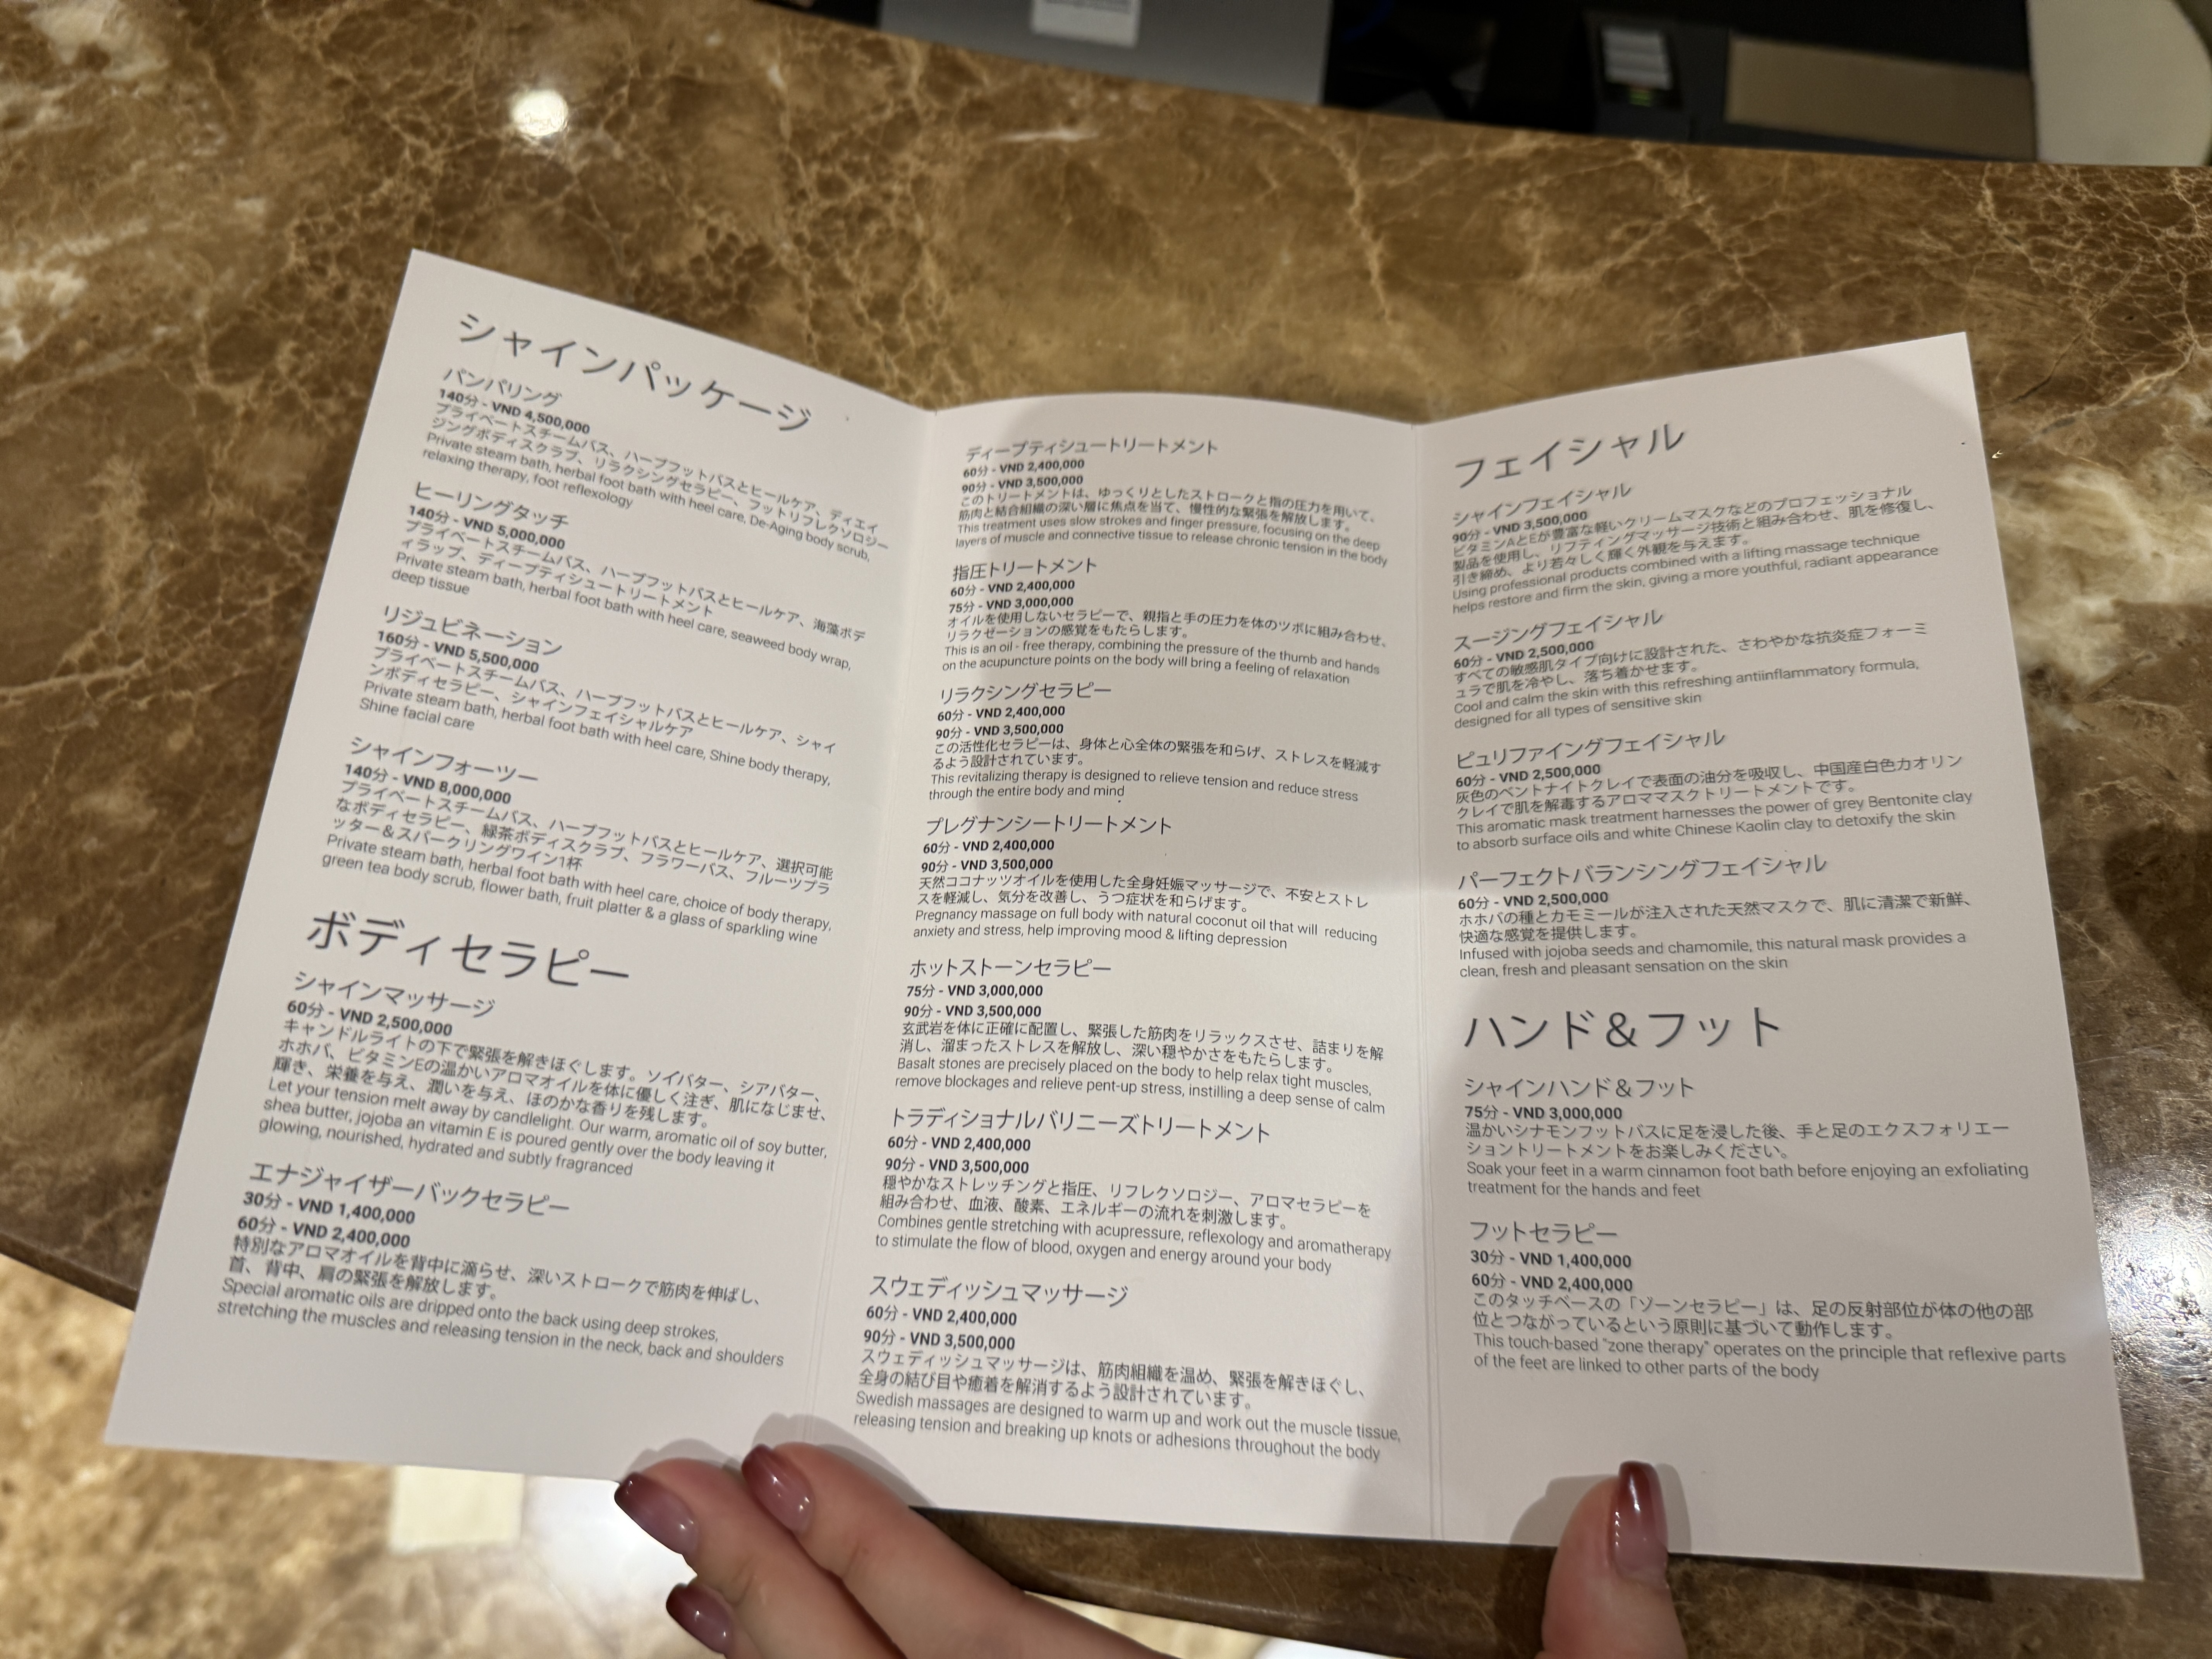 シャインパッケージ
パンパリング
140分 - VND 4,500,000
プライベートスチームバス、ハーブフットバスとヒールケア、ディエイ
ジングボディスクラブ、リラクシングセラピー、フットリフレクソロジー
Private steam bath, herbal foot bath with heel care, De-Aging body scrub,
relaxing therapy, foot reflexology
ヒーリングタッチ
140分 - VND 5,000,000
プライベートスチームバス、ハーブフットバスとヒールケア、海藻ボデ
ィラップ、ディープティシュートリートメント
Private steam bath, herbal foot bath with heel care, seaweed body wrap,
deep tissue
リジュビネーション
160分 - VND 5,500,000
プライベートスチームバス、ハーブフットバスとヒールケア、シャイ
ンボディセラピー、シャインフェイシャルケア
Private steam bath, herbal foot bath with heel care, Shine body therapy,
Shine facial care
シャインフォーツー
140分 - VND 8,000,000
プライベートスチームバス、ハーブフットバスとヒールケア、選択可能
なボディセラピー、緑茶ボディスクラブ、フラワーバス、フルーツプラ
ッター＆スパークリングワイン1杯
Private steam bath, herbal foot bath with heel care, choice of body therapy,
green tea body scrub, flower bath, fruit platter & a glass of sparkling wine
ボディセラピー
シャインマッサージ
60分 - VND 2,500,000
キャンドルライトの下で緊張を解きほぐします。ソイバター、シアバター、
ホホバ、ビタミンEの温かいアロマオイルを体に優しく注ぎ、肌になじませ、
輝き、栄養を与え、潤いを与え、ほのかな香りを残します。
Let your tension melt away by candlelight. Our warm, aromatic oil of soy butter,
shea butter, jojoba an vitamin E is poured gently over the body leaving it
glowing, nourished, hydrated and subtly fragranced
エナジャイザーバックセラピー
30分 - VND 1,400,000
60分 - VND 2,400,000
特別なアロマオイルを背中に滴らせ、深いストロークで筋肉を伸ばし、
首、背中、肩の緊張を解放します。
Special aromatic oils are dripped onto the back using deep strokes,
stretching the muscles and releasing tension in the neck, back and shoulders
ディープティシュートリートメント
60分 - VND 2,400,000
90分 - VND 3,500,000
このトリートメントは、ゆっくりとしたストロークと指の圧力を用いて、
筋肉と結合組織の深い層に焦点を当て、慢性的な緊張を解放します。
This treatment uses slow strokes and finger pressure, focusing on the deep
layers of muscle and connective tissue to release chronic tension in the body
指圧トリートメント
60分 - VND 2,400,000
75分 - VND 3,000,000
オイルを使用しないセラピーで、親指と手の圧力を体のツボに組み合わせ、
リラクゼーションの感覚をもたらします。
This is an oil - free therapy, combining the pressure of the thumb and hands
on the acupuncture points on the body will bring a feeling of relaxation
リラクシングセラピー
60分 - VND 2,400,000
90分 - VND 3,500,000
この活性化セラピーは、身体と心全体の緊張を和らげ、ストレスを軽減す
るよう設計されています。
This revitalizing therapy is designed to relieve tension and reduce stress
through the entire body and mind
プレグナンシートリートメント
60分 - VND 2,400,000
90分 - VND 3,500,000
天然ココナッツオイルを使用した全身妊娠マッサージで、不安とストレ
スを軽減し、気分を改善し、うつ症状を和らげます。
Pregnancy massage on full body with natural coconut oil that will reducing
anxiety and stress, help improving mood & lifting depression
ホットストーンセラピー
75分 - VND 3,000,000
90分 - VND 3,500,000
玄武岩を体に正確に配置し、緊張した筋肉をリラックスさせ、詰まりを解
消し、溜まったストレスを解放し、深い穏やかさをもたらします。
Basalt stones are precisely placed on the body to help relax tight muscles,
remove blockages and relieve pent-up stress, instilling a deep sense of calm
トラディショナルバリニーズトリートメント
60分 - VND 2,400,000
90分 - VND 3,500,000
穏やかなストレッチングと指圧、リフレクソロジー、アロマセラピーを
組み合わせ、血液、酸素、エネルギーの流れを刺激します。
Combines gentle stretching with acupressure, reflexology and aromatherapy
to stimulate the flow of blood, oxygen and energy around your body
スウェディッシュマッサージ
60分 - VND 2,400,000
90分 - VND 3,500,000
スウェディッシュマッサージは、筋肉組織を温め、緊張を解きほぐし、
全身の結び目や癒着を解消するよう設計されています。
Swedish massages are designed to warm up and work out the muscle tissue,
releasing tension and breaking up knots or adhesions throughout the body
フェイシャル
シャインフェイシャル
90分 - VND 3,500,000
ビタミンAとEが豊富な軽いクリームマスクなどのプロフェッショナル
製品を使用し、リフティングマッサージ技術と組み合わせ、肌を修復し、
引き締め、より若々しく輝く外観を与えます。
Using professional products combined with a lifting massage technique
helps restore and firm the skin, giving a more youthful, radiant appearance
スージングフェイシャル
60分 - VND 2,500,000
すべての敏感肌タイプ向けに設計された、さわやかな抗炎症フォーミ
ュラで肌を冷やし、落ち着かせます。
Cool and calm the skin with this refreshing antiinflammatory formula,
designed for all types of sensitive skin
ピュリファイングフェイシャル
60分 - VND 2,500,000
灰色のベントナイトクレイで表面の油分を吸収し、中国産白色カオリン
クレイで肌を解毒するアロママスクトリートメントです。
This aromatic mask treatment harnesses the power of grey Bentonite clay
to absorb surface oils and white Chinese Kaolin clay to detoxify the skin
パーフェクトバランシングフェイシャル
60分 - VND 2,500,000
ホホバの種とカモミールが注入された天然マスクで、肌に清潔で新鮮、
快適な感覚を提供します。
Infused with jojoba seeds and chamomile, this natural mask provides a
clean, fresh and pleasant sensation on the skin
ハンド＆フット
シャインハンド＆フット
75分 - VND 3,000,000
温かいシナモンフットバスに足を浸した後、手と足のエクスフォリエー
ショントリートメントをお楽しみください。
Soak your feet in a warm cinnamon foot bath before enjoying an exfoliating
treatment for the hands and feet
フットセラピー
30分 - VND 1,400,000
60分 - VND 2,400,000
このタッチベースの「ゾーンセラピー」は、足の反射部位が体の他の部
位とつながっているという原則に基づいて動作します。
This touch-based "zone therapy" operates on the principle that reflexive parts
of the feet are linked to other parts of the body